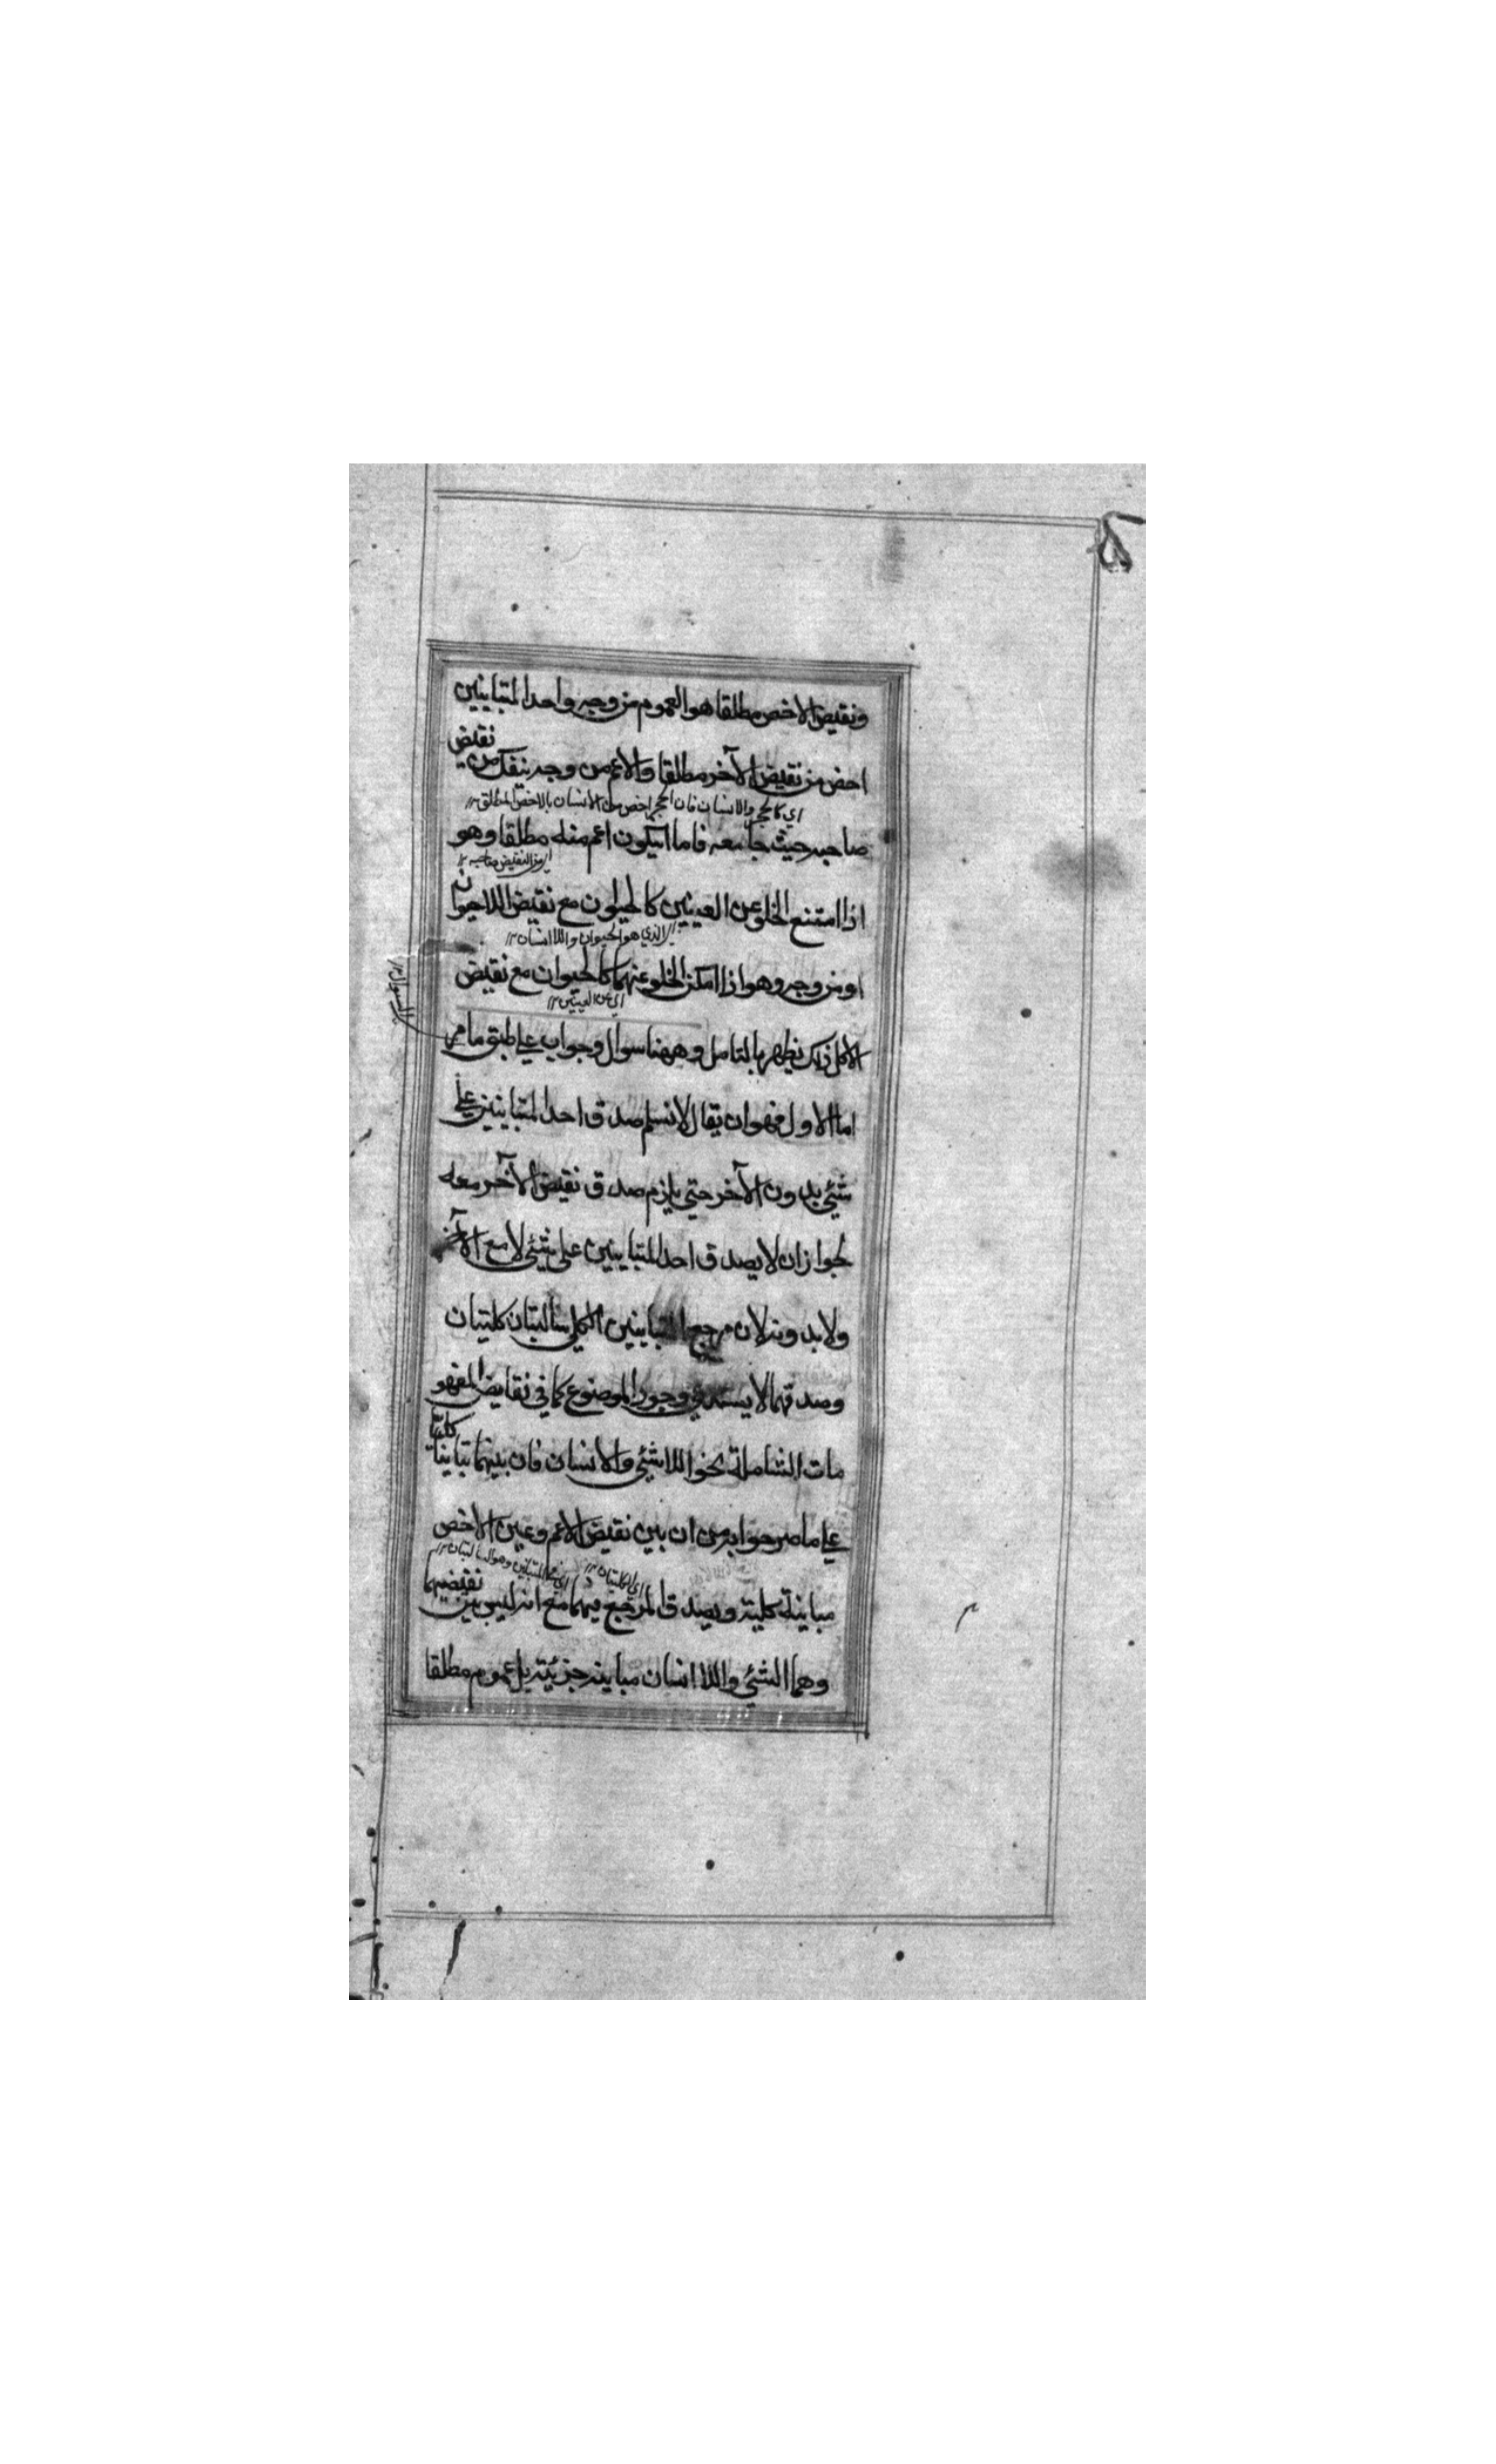 ونقيض الاخص مطلقا هو العموم من وجه واحد المتباينين
نقيض
اخص من نقيض الآخر مطلقا والاعم من وجه ينفك من
اي كالحجر والانسان فان الحجر اخص من الانسان بالاخص المطلق ١٢
صاحبه حيث جامعه فاما ان يكون اعم منه مطلقا وهو
اي من النقيض صاحبه ١٢
اذا امتنع الخلو عن العينين كالحيوان مع نقيض اللاحيوان
الذي هو الحيوان واللاانسان ١٢
او من وجه وهو اذا امكن الخلو عنهما كالحيوان مع نقيض
اي عن العينين ١٢
كل ذلك يظهر بالتامل وههنا سوال وجواب علي طبق ما مر
اما الاول فهو ان يقال لانسلم صدق احد المتباينين علي
شيئ بدون الآخر حتي يلزم صدق نقيض الآخر معه
لجواز ان لا يصدق احد المتباينين علي شيئ لا مع الآخر
ولا بدونه لان مرجع المتباينين الكلي سالبتان كليتان
وصدقهما لا يستدعي وجود الموضوع كما في نقايض المفهو
كليا
مات الشاملة نحو اللاشيئ والانسان فان بينهما تباينا
علي ما صرحوا به من ان بين نقيض الاعم وعين الاخص
اي الكليتان ١٢
نقيضيهما
مباينة كلية ويصدق المرجع فيهما مع انه ليس بين
وهما الشيئ واللاانسان مباينة جزئية بل عموم مطلقا